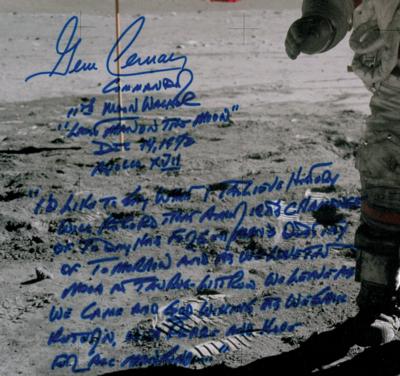 Gene Cernan
Commander
"Last Man on the Moon"
Dec 14, 1972
Apollo XVII
"I'd like to say what I believe history
will record that America's challenge
of today has forged man's destiny
of tomorrow and as we leave the
Moon at Taurus-Littrow we leave as
we came and God willing as we shall
return, with peace and hope
for all mankind"